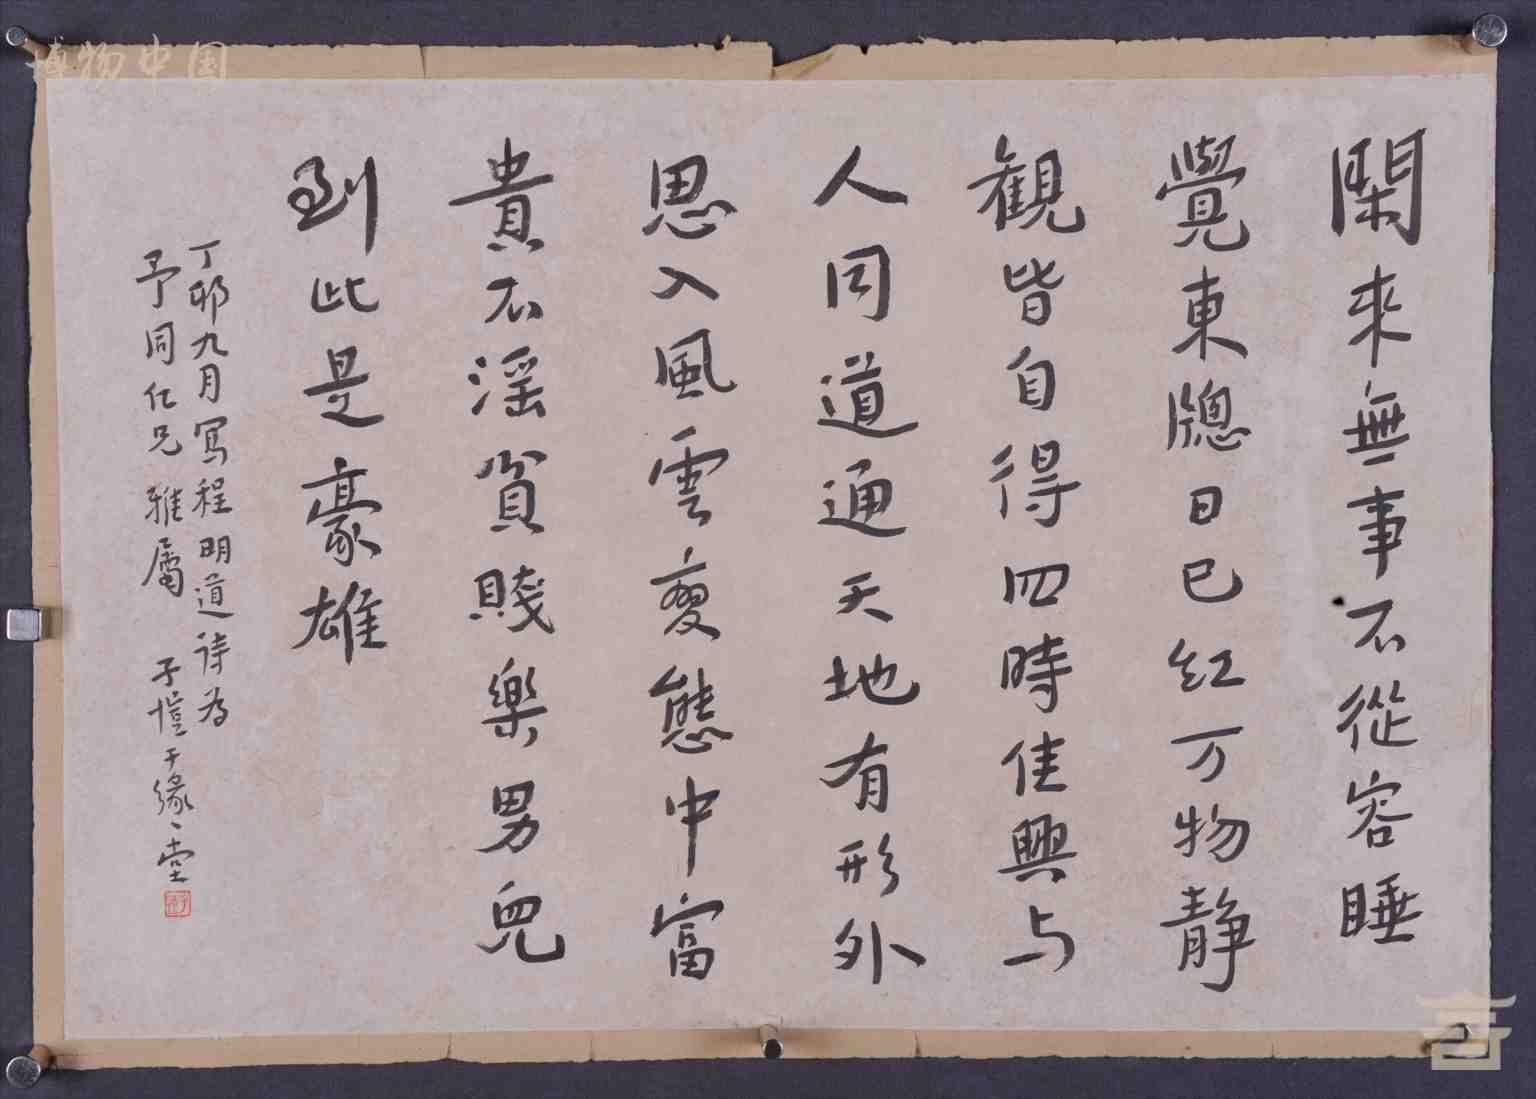 閑来無事不從容睡
覺東牕日已红万物静
観皆自得四時佳興与
人同道通天地有形外
思入風雲变態中富
貴不淫貧賤樂男兒
到此是豪雄
丁卯九月写程明道诗为
予同仁兄雅属 子愷于缘缘堂
博物中国